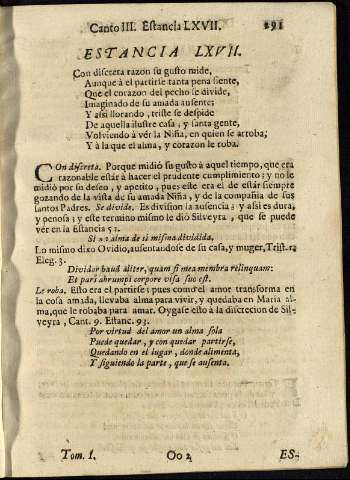 Canto III. Estancia LXVII. 291
ESTANCIA LXVII.
Con discreta razon su gusto mide,
Aunque à el partirse tanta pena siente,
Que el corazon del pecho se divide,
Imaginado de su amada ausente;
Y assi llorando, triste se despide
De aquella ilustre casa, y santa gente,
Volviendo à vèr la Niña, en quien se arroba,
Y à la que el alma, y corazon le roba.
Con discreta. Porque midiò su gusto à aquel tiempo, que era
razonable estàr à hacer el prudente cumplimiento; y no le
midiò por su deseo, y apetito, pues este era el de estàr siempre
gozando de la vista de su amada Niña, y de la compañia de sus
santos Padres. Se divide. Es division la ausencia; y assi es dura,
y penosa; y este termino mismo le diò Silveyra, que se puede
vèr en la Estancia 51.
Si alma de si misma dividida,
Lo mismo dixo Ovidio, ausentandose de su casa, y muger, Trist.
Eleg. 3.
Dividor haud aliter, quam si mea membra relinquam:
Et pars abrumpi corpore visa suo est.
Le roba. Esto era el partirse; pues como el amor transforma en
la cosa amada, llevaba alma para vivir, y quedaba en Maria alma,
que le robaba para amar. Oygase esto à la discrecion de Silveyra,
Cant. 9. Estanc. 93.
Por virtud del amor un alma sola
Puede quedar, y con quedar partirse,
Quedando en el lugar, donde alimenta,
Y siguiendo la parte, que se ausenta.
Tom. I. Oo 2 ES-